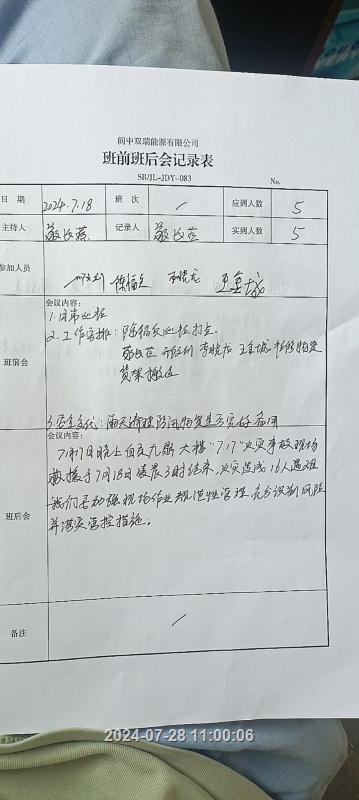 阆中双瑞能源有限公司
班前班后会记录表
SR/JL-JDY-083
No.
日 期 2024.7.18 班 次 / 应到人数 5
主持人 记录人 实到人数 5
参加人员 陈福良 李晓龙 王金城
班前会 会议内容:
1.日常巡检
2.工作安排:陈福良巡检打点
李晓龙 王金城 物资
货架搬运
3.安全交代:雨天清理防汛物资是否完好备用
班后会 会议内容:
7月17日晚上自贡九鼎大楼"7.17"火灾事故现场
救援于7月18日凌晨3时结束,火灾造成16人遇难
我们要加强现场作业规范性管理,充分识别风险
并落实管控措施。
备注 /
2024-07-28 11:00:06